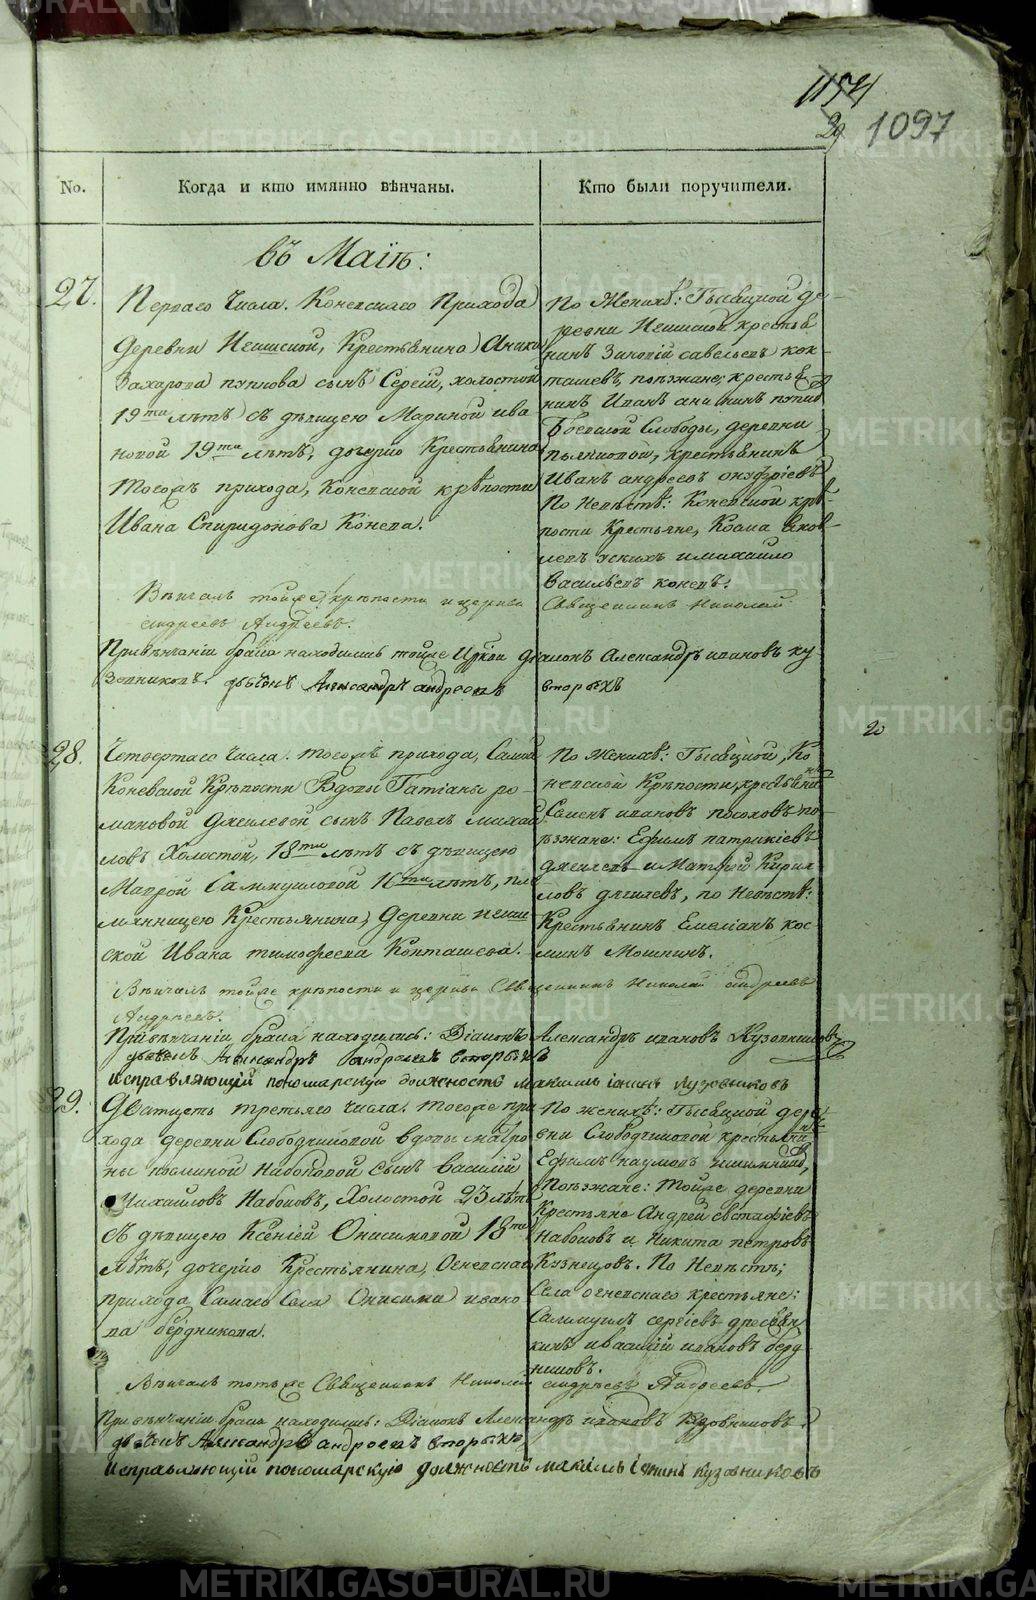 1154
29 1097
No.
Когда и кто имянно вѣнчаны.
Кто были поручители.
въ Маiѣ:
27.
Перваго Числа. Коневскаго Прихода
деревни Крестьянина Аники
Захарова пупкова сынъ Сергiй, холостой
19ти лѣтъ съ дѣвицею Мариной ива
новой 19ти лѣтъ, дочерью Крестьянина
Тогожъ прихода, Коневской крѣпости
Ивана Спиридонова Конева.
По Женихѣ: Тысяцкой де
ревни крестья
нинъ Зиновiй савельевъ кок
ташевъ, поезжане; крестья
нинъ Иванъ аникинъ пупков
Боевской Слободы, деревни
крестьянинъ
Иванъ андреевъ онуфрiевъ
По Невѣстѣ: Коневской крѣ
пости Крестьяне, Козма яков
левъ ускихъ и михайло
Васильевъ коневъ.
Вѣнчалъ тойже крѣпости и церкви Священникъ Николай
андреевъ Андреевъ.
При вѣнчанiи брака находились тойже Церкви дiаконъ Александръ ивановъ ку
зовниковъ. дьячекъ Александръ андреевъ вторыхъ
28.
Четвертаго Числа. тогожъ прихода, Самой
Коневской Крѣпости Вдовы Татiаны ро
мановой сынъ Павелъ михай
ловъ Холостой, 18ти лѣтъ съ дѣвицею
Маврой Самуиловой 16ти лѣтъ, пле
мянницею Крестьянина, деревни
ской Ивана тимофеева Кокташева.
По Женихѣ: Тысяцкой, Ко
невской Крѣпости, крестьяни
Семенъ ивановъ посоховъ по
езжане: Ефимъ патрикiевъ
и Матфей Кирил
ловъ дягилевъ, по Невѣстѣ:
Крестьянинъ Емелiанъ кос
минъ Мошкинъ.
20
Вѣнчалъ тойже крѣпости и церкви Священникъ Николай андреевъ
Андреевъ.
При вѣнчанiи брака находились: Дiаконъ Александръ ивановъ Кузовниковъ
дьячекъ Александръ андреевъ вторыхъ
исправляющiй пономарскую должность максимъ iакимъ кузовниковъ
29.
Дватцеть третьяго числа. тогоже при
хода деревни Слободчиковой вдовы матро
ны Набоковой сынъ Василiй
Михайловъ Набоковъ, Холостой 23 лѣтъ
съ дѣвицею Ксенiей Онисимовой 18ти
лѣтъ, дочерью Крестьянина, Огневскаго
прихода, Самаго Села Онисима ивано
ва бердникова.
По женихѣ: Тысяцкой дере
вни Слободчиковой крестьяни
Ефимъ наумовъ
Поезжане: Тойже деревни
Крестьяне Андрей евстафiевъ
Набоковъ и Никита петровъ
Кузнецовъ. По Невѣстѣ;
Села огневскаго крестьяне:
Самуилъ сергiевъ
и василiй ивановъ берд
никовъ.
Вѣнчалъ тотъже Священникъ Николай андреевъ Андреевъ.
При вѣнчанiи брака находились: Дiаконъ Александръ ивановъ Кузовниковъ
дьячекъ Александръ андреевъ вторыхъ
исправляющiй пономарскую должность максимъ iакимъ кузовниковъ
METRIKI.GASO-URAL.RU